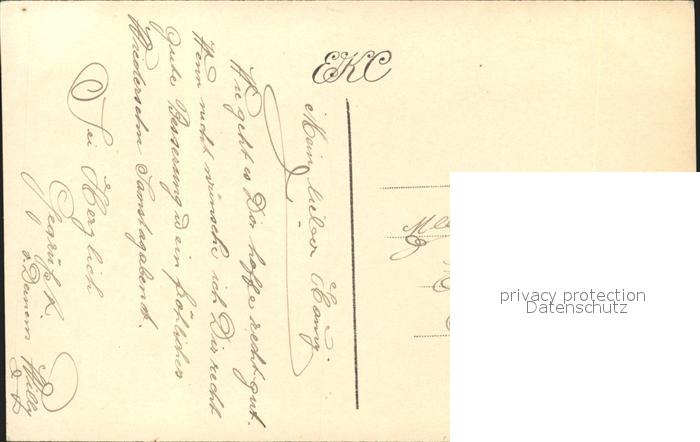 EKC
Mein lieber
Wie geht es Dir hoffe recht gut.
Wenn nicht wünsche ich Dir recht
gute Besserung u ein fröliches
Wiedersehn Samstagabend.
Sei Herzlich
Gegrüßt
v. Deinem Willy
privacy protection
Datenschutz